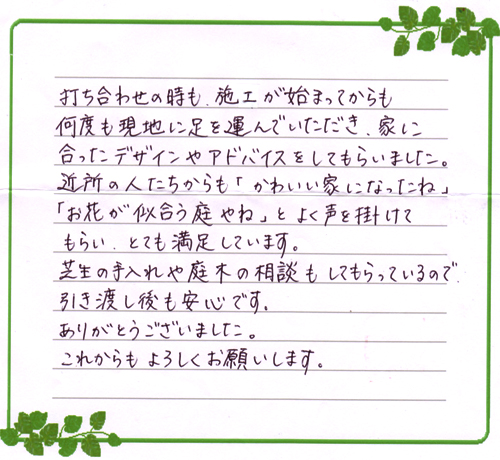 打ち合わせの時も、施工が始まってからも
何度も現地に足を運んでいただき、家に
合ったデザインやアドバイスをしてもらいました。
近所の人たちからも「かわいい家になったね」
「お花が似合う庭やね」とよく声を掛けて
もらい、とても満足しています。
芝生の手入れや庭木の相談もしてもらっているので、
引き渡し後も安心です。
ありがとうございました。
これからもよろしくお願いします。